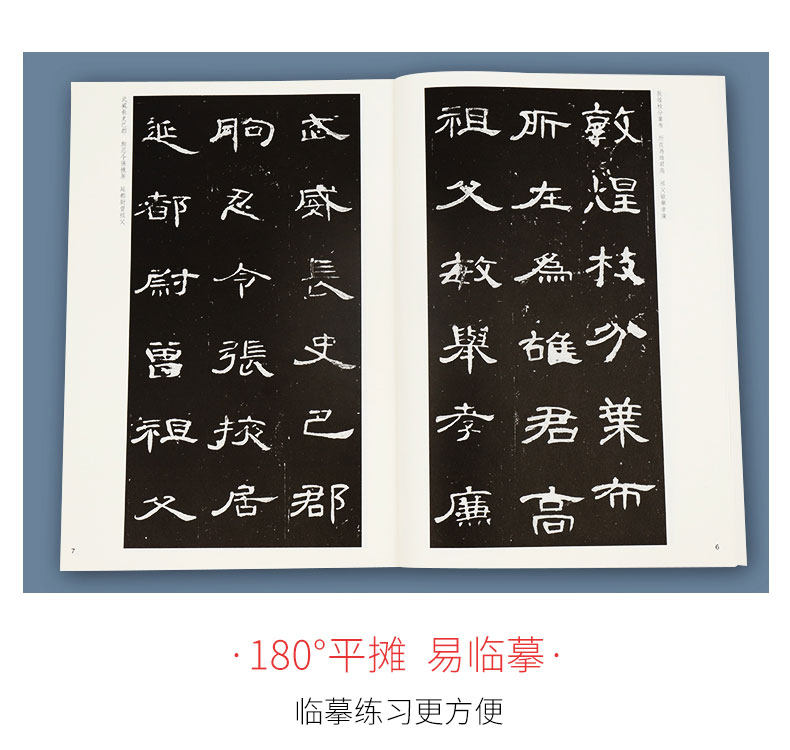 敦煌枝分葉布
所在為雄君高
祖父敏舉孝廉
敦煌枝分葉布 所在為雄君高 祖父敏舉孝廉
6
武威長史巴郡
朐忍令張掖居
延都尉曾祖父
武威長史巴郡 朐忍令張掖居 延都尉曾祖父
7
·180°平摊 易临摹·
临摹练习更方便